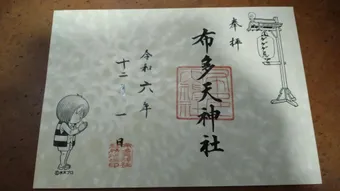 奉拝
布多天神社
令和六年
十二月一日
©水木プロ